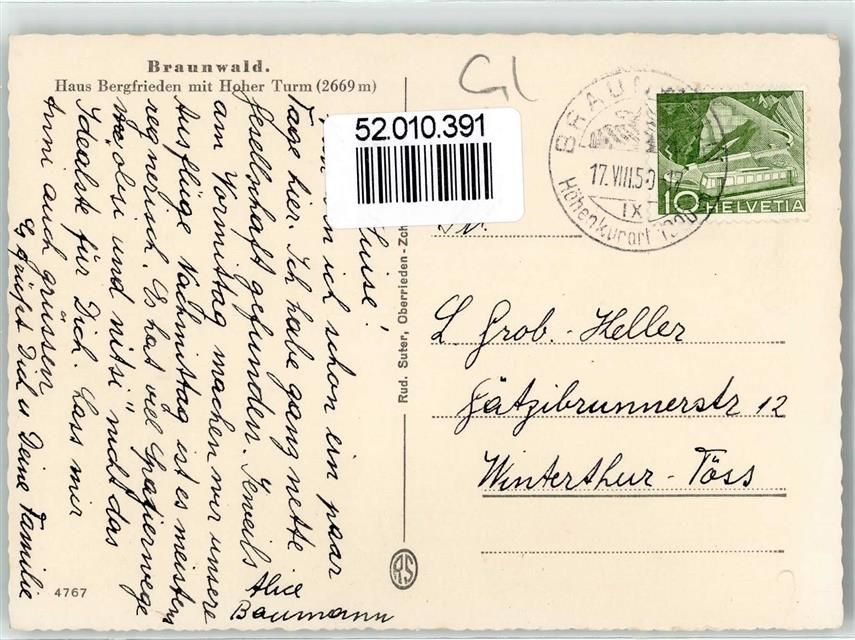 Braunwald.
Haus Bergfrieden mit Hoher Turm (2669 m)
Gl
52.010.391
BRAUN
17.VIII.50 17
IX
Höhenkurort 1300
10 HELVETIA
Luise!
ich schon ein paar
Tage hier. Ich habe ganz nette
Gesellschaft gefunden. Jeweils
am Vormittag machen wir unsere
Ausflüge Nachmittag ist es meistens
regnerisch. Es hat viel Spazierwege
und nitsi" nicht das
Idealste für Dich. Lass mir
auch grüssen
Es grüsst Dich u Deine Familie
Alice
Baumann
Rud. Suter, Oberrieden-Zch
RS
4767
L Grob-Heller
Gätzibrunnerstr 12
Winterthur-Töss